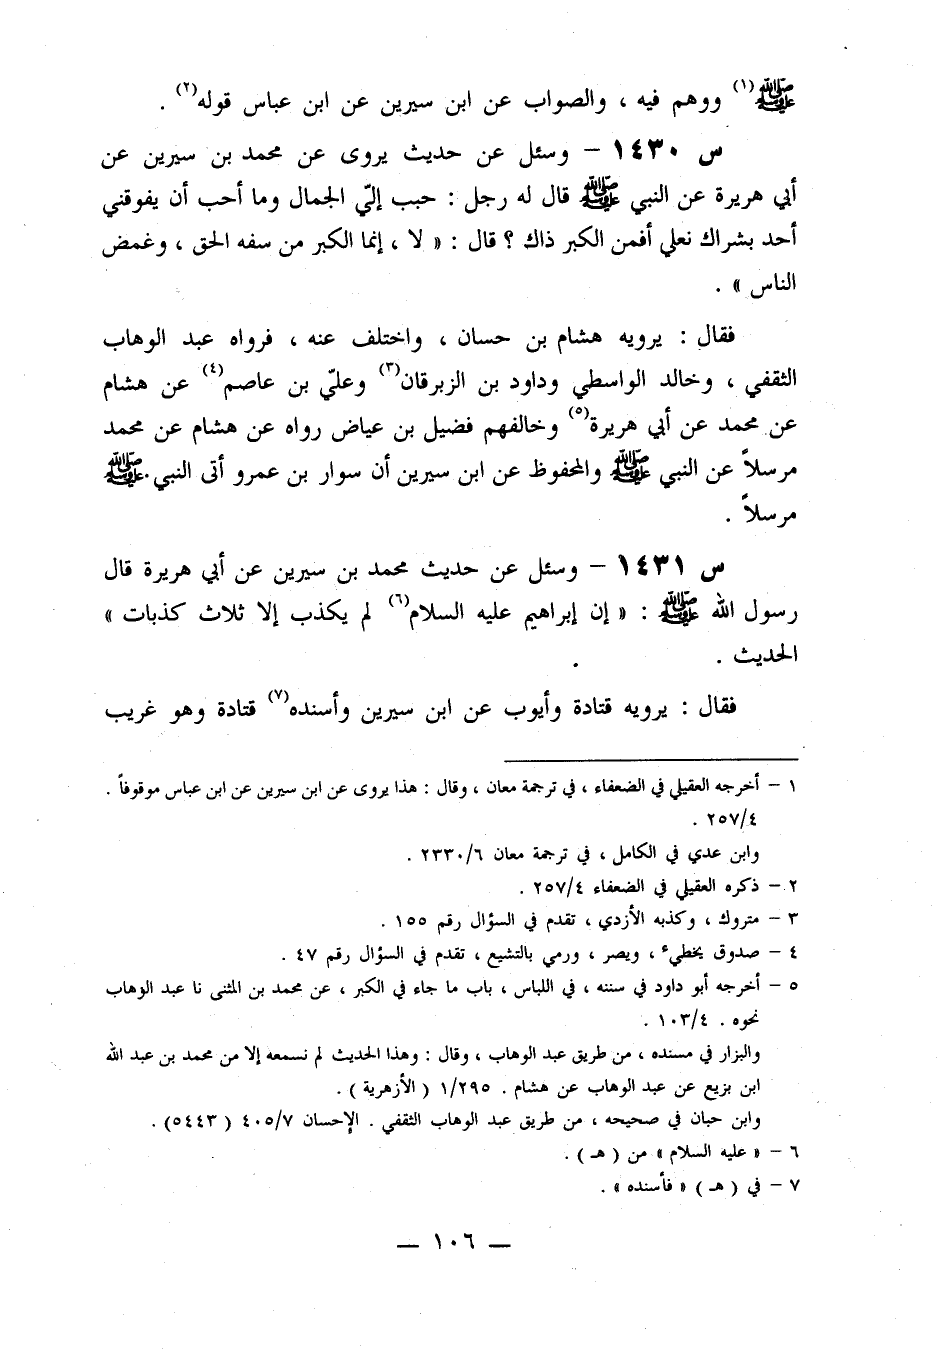 ﷺ(١) ووهم فيه ، والصواب عن ابن سيرين عن ابن عباس قوله(٢) .
س ١٤٣٠ – وسئل عن حديث يروى عن محمد بن سيرين عن
أبي هريرة عن النبي ﷺ قال له رجل : حبب إليّ الجمال وما أحب أن يفوقني
أحد بشراك نعلي أفمن الكبر ذاك ؟ قال : « لا ، إنما الكبر من سفه الحق ، وغمض
الناس » .
فقال : يرويه هشام بن حسان ، واختلف عنه ، فرواه عبد الوهاب
الثقفي ، وخالد الواسطي وداود بن الزبرقان(٣) وعليّ بن عاصم(٤) عن هشام
عن محمد عن أبي هريرة(٥) وخالفهم فضيل بن عياض رواه عن هشام عن محمد
مرسلاً عن النبي ﷺ والمحفوظ عن ابن سيرين أن سوار بن عمرو أتى النبي ﷺ
مرسلاً .
س ١٤٣١ – وسئل عن حديث محمد بن سيرين عن أبي هريرة قال
رسول الله ﷺ : « إن إبراهيم عليه السلام(٦) لم يكذب إلا ثلاث كذبات »
الحديث .
فقال : يرويه قتادة وأيوب عن ابن سيرين وأسنده(٧) قتادة وهو غريب
١ – أخرجه العقيلي في الضعفاء ، في ترجمة معان ، وقال : هذا يروى عن ابن سيرين عن ابن عباس موقوفاً .
٢٥٧/٤ .
وابن عدي في الكامل ، في ترجمة معان ٢٣٣٠/٦ .
٢ – ذكره العقيلي في الضعفاء ٢٥٧/٤ .
٣ – متروك ، وكذبه الأزدي ، تقدم في السؤال رقم ١٥٥ .
٤ – صدوق يخطيء ، ويصر ، ورمي بالتشيع ، تقدم في السؤال رقم ٤٧ .
٥ – أخرجه أبو داود في سننه ، في اللباس ، باب ما جاء في الكبر ، عن محمد بن المثنى نا عبد الوهاب
نحوه . ١٠٣/٤ .
والبزار في مسنده ، من طريق عبد الوهاب ، وقال : وهذا الحديث لم نسمعه إلا من محمد بن عبد الله
ابن بزيع عن عبد الوهاب عن هشام . ١/٢٩٥ ( الأزهرية ) .
وابن حبان في صحيحه ، من طريق عبد الوهاب الثقفي . الإحسان ٤٠٥/٧ ( ٥٤٤٣ ) .
٦ – « عليه السلام » من ( هـ ) .
٧ – في ( هـ ) « فأسنده » .
— ١٠٦ —